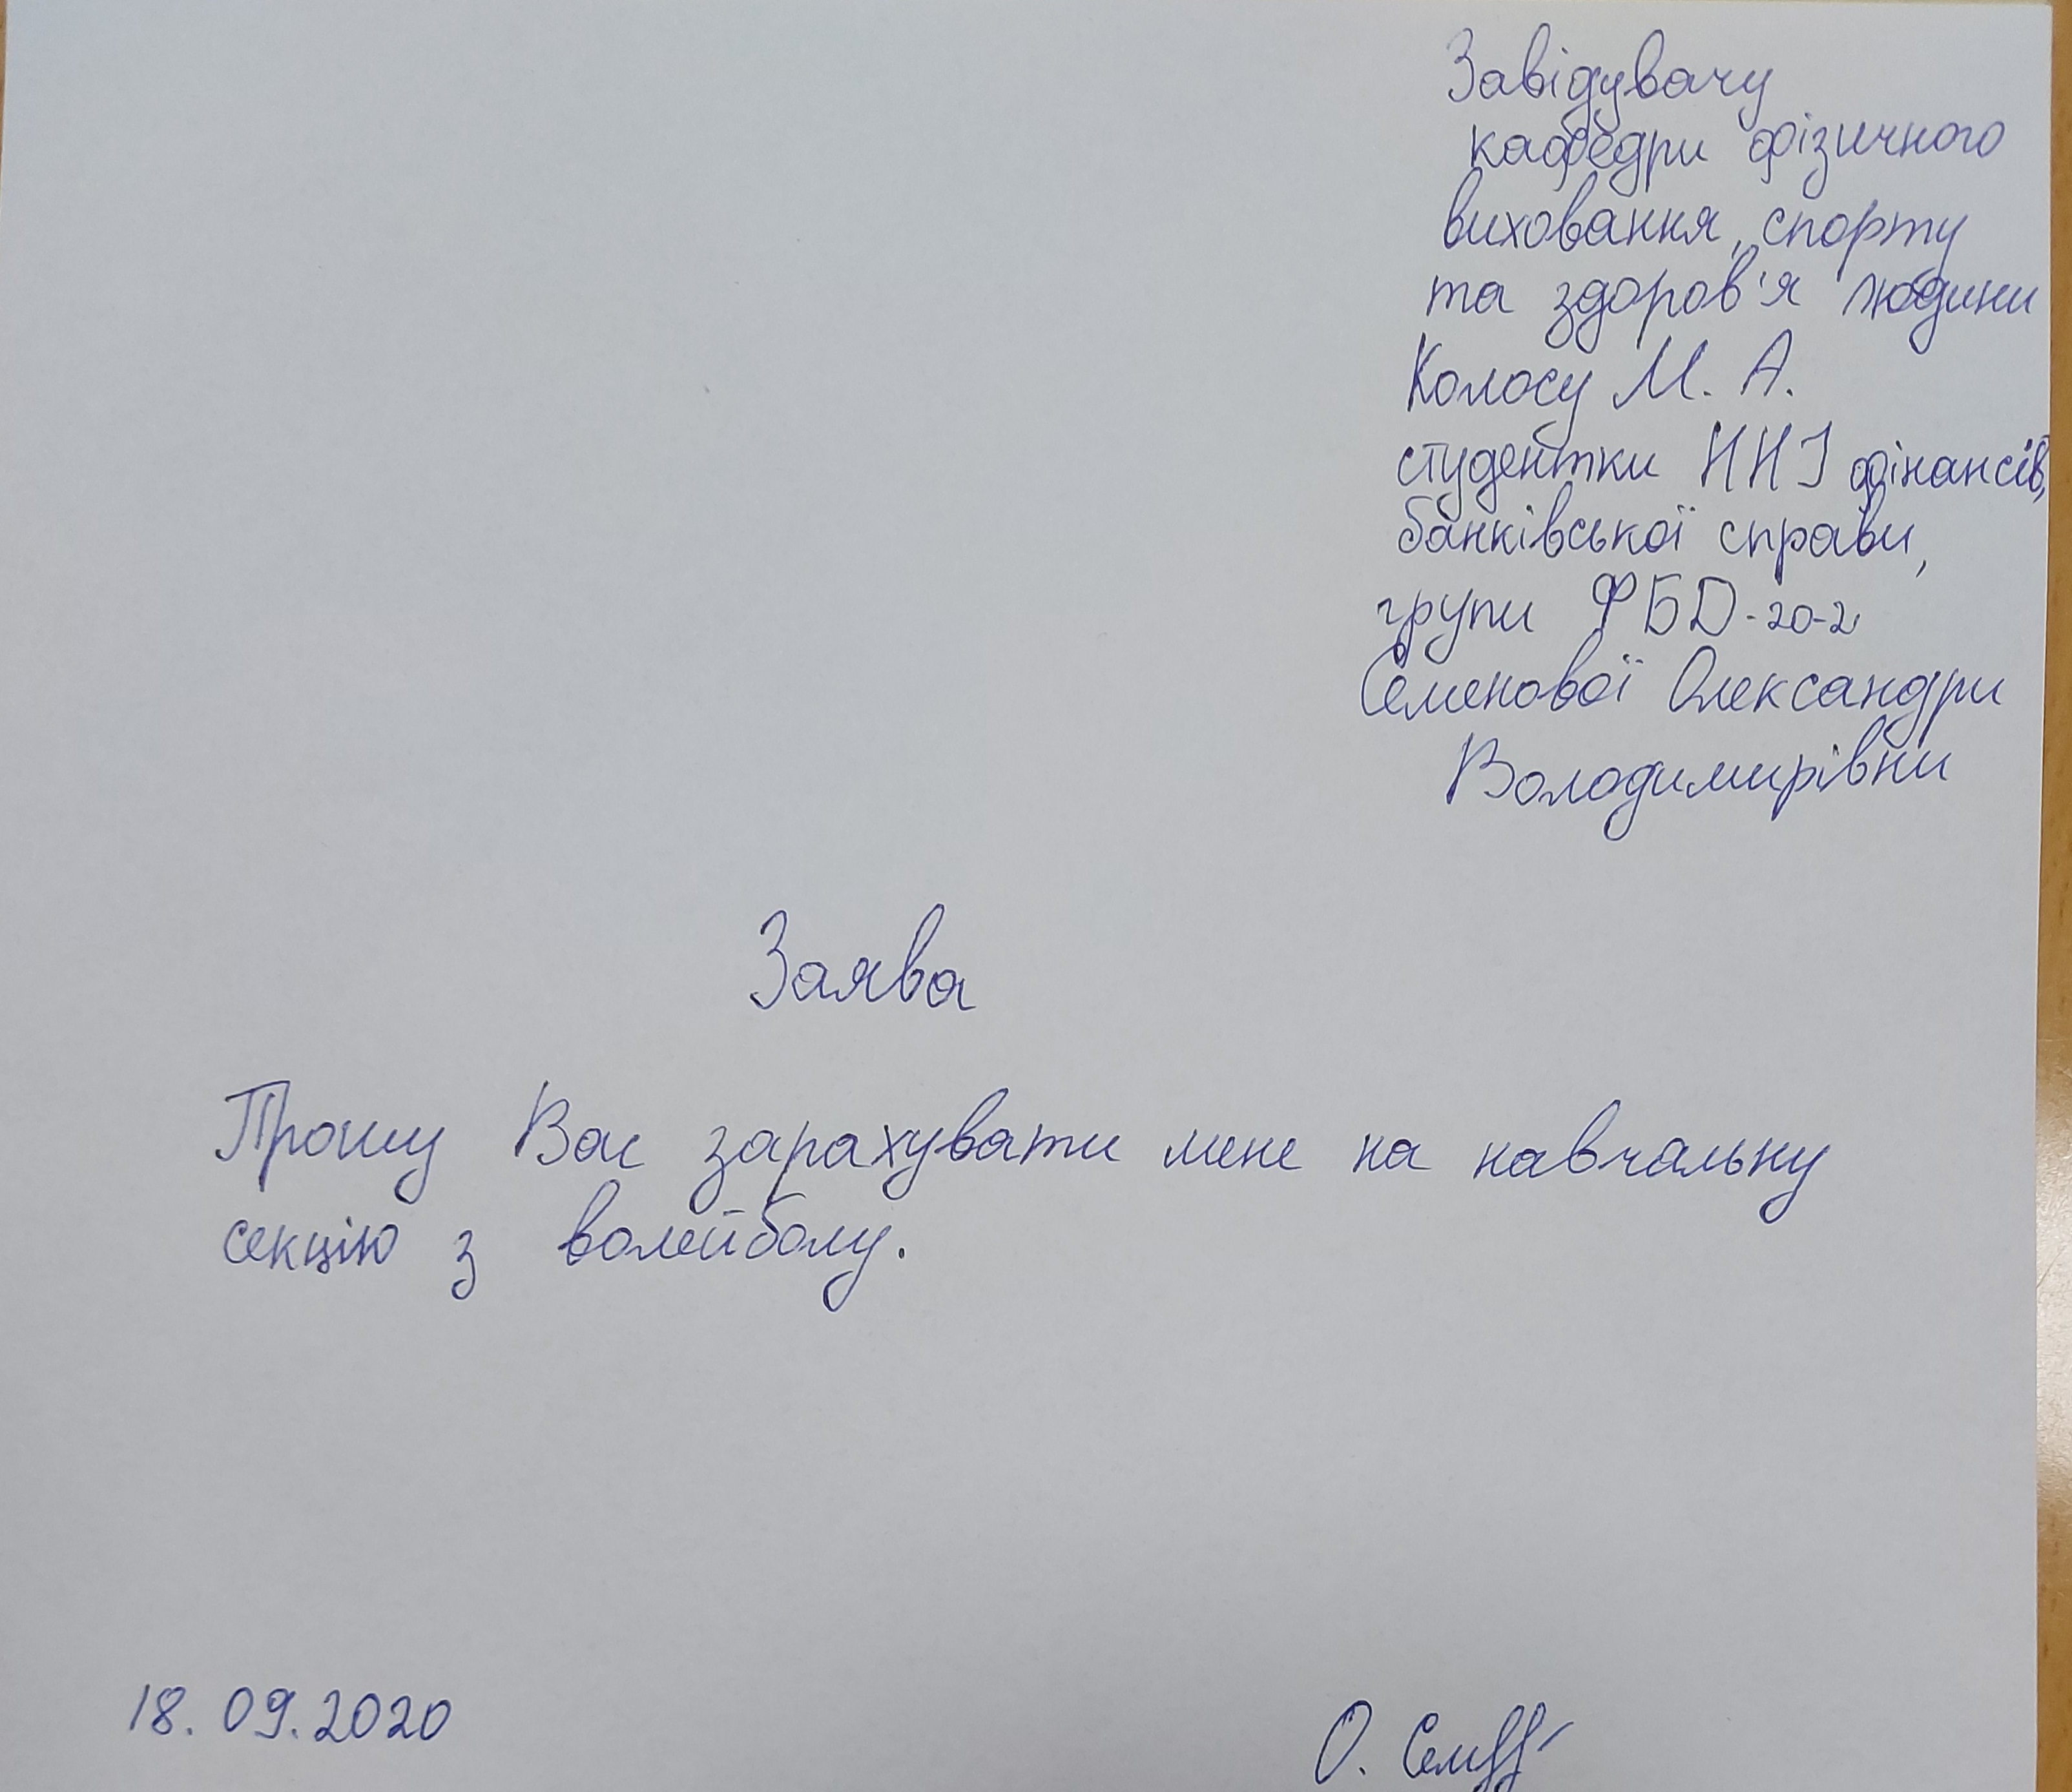 Завідувачу
кафедри фізичного
виховання, спорту
та здоров'я людини
Колосу М. А.
студентки ННІ фінансів,
банківської справи,
групи ФБД-20-2
Семенової Олександри
Володимирівни
Заява
Прошу Вас зарахувати мене на навчальну
секцію з волейболу.
18.09.2020
О.